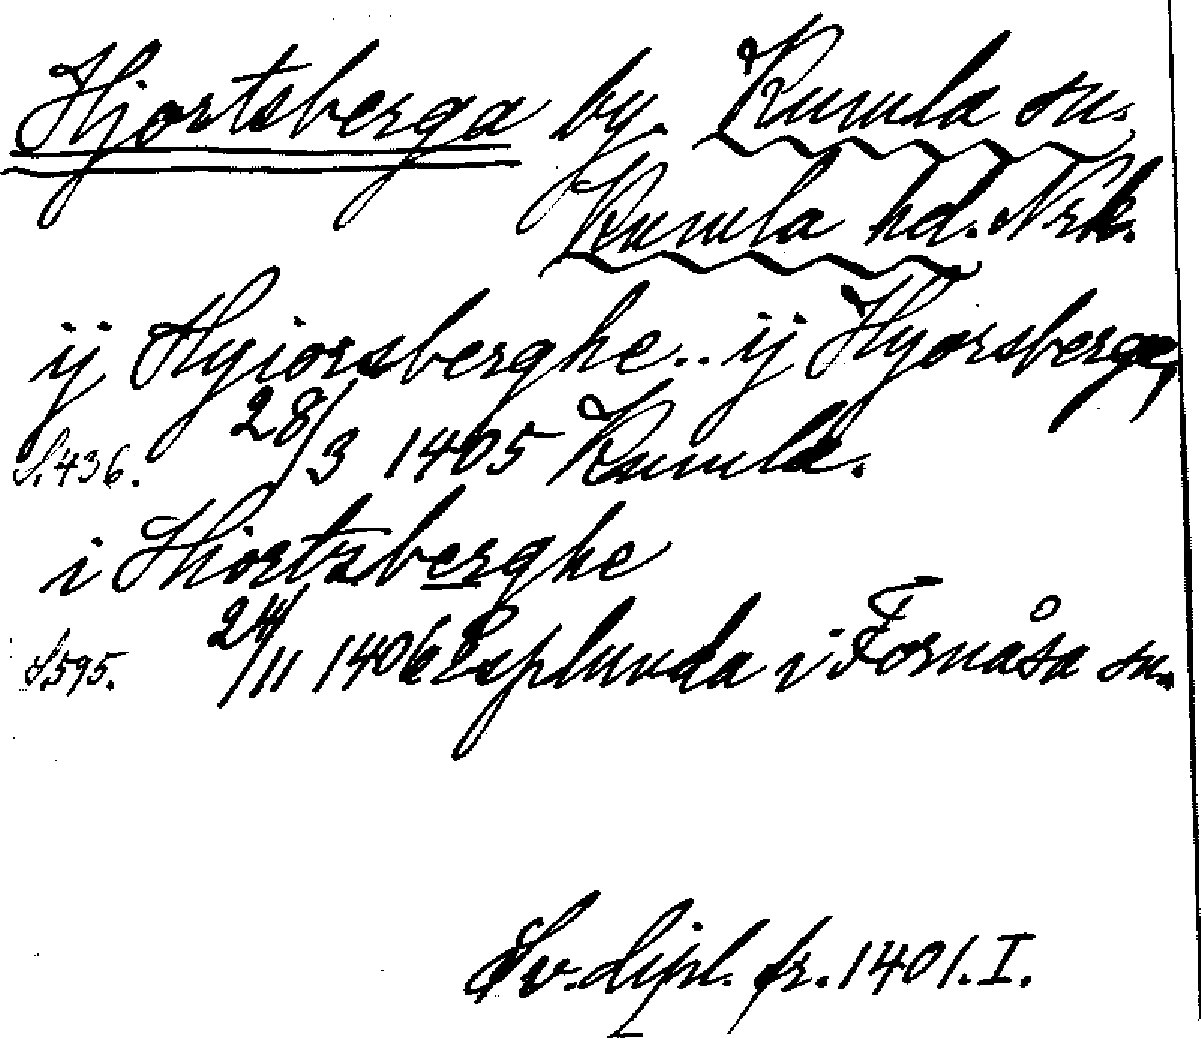 Hjortsberga by. Kumla sn.
Kumla hd. Nrk.
ij Hyiorsberghe.. ij Hyorsberge,
S. 436. 28/3 1405 Kumla.
i Hiortzberghe
S 595. 24/11 1406 Esplunda i Fornåsa sn.
Sv. dipl. fr. 1401. I.